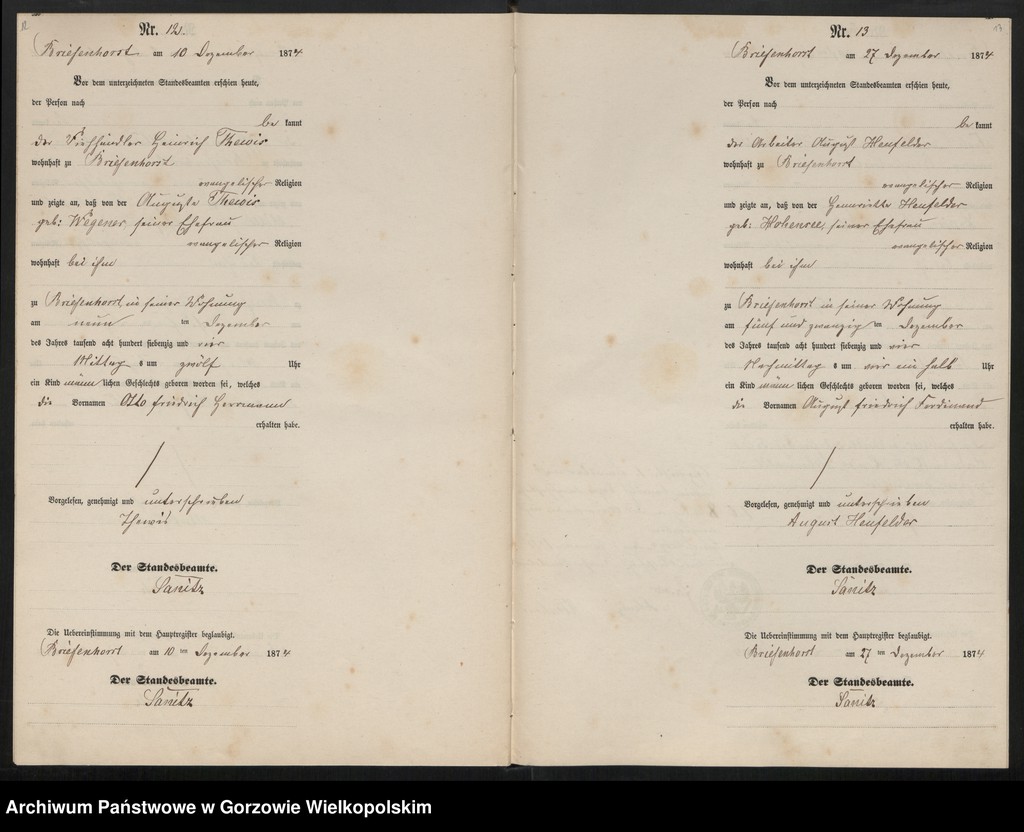 12
Nr. 12.
Briesenhorst am 10 Dezember 1874
Vor dem unterzeichneten Standesbeamten erschien heute,
der Person nach
be kannt
der Viehhändler Heinrich Thewis
wohnhaft zu Briesenhorst
evangelischer Religion
und zeigte an, daß von der Auguste Thewis
geb: Wegener seiner Ehefrau
evangelischer Religion
wohnhaft bei ihm
zu Briesenhorst, in seiner Wohnung
am neun ten Dezember
des Jahres tausend acht hundert siebenzig und vier
Mittag s um zwölf Uhr
ein Kind männ lichen Geschlechts geboren worden sei, welches
die Vornamen Otto Friedrich Herrmann
erhalten habe.
Vorgelesen, genehmigt und unterschrieben
Thewis
Der Standesbeamte.
Sanitz
Die Uebereinstimmung mit dem Hauptregister beglaubigt.
Briesenhorst am 10 ten Dezember 1874
Der Standesbeamte.
Sanitz
13
Nr. 13
Briesenhorst am 27 Dezember 1874
Vor dem unterzeichneten Standesbeamten erschien heute,
der Person nach
be kannt
der Arbeiter August Henfelder
wohnhaft zu Briesenhorst
evangelischer Religion
und zeigte an, daß von der Henriette Henfelder
geb: Hohensee, seiner Ehefrau
evangelischer Religion
wohnhaft bei ihm
zu Briesenhorst in seiner Wohnung
am fünf und zwanzig ten Dezember
des Jahres tausend acht hundert siebenzig und vier
Nachmittag s um vier ein halb Uhr
ein Kind männ lichen Geschlechts geboren worden sei, welches
die Vornamen August Friedrich Ferdinand
erhalten habe.
Vorgelesen, genehmigt und unterschrieben
August Henfelder
Der Standesbeamte.
Sanitz
Die Uebereinstimmung mit dem Hauptregister beglaubigt.
Briesenhorst am 27 ten Dezember 1874
Der Standesbeamte.
Sanitz
Archiwum Państwowe w Gorzowie Wielkopolskim